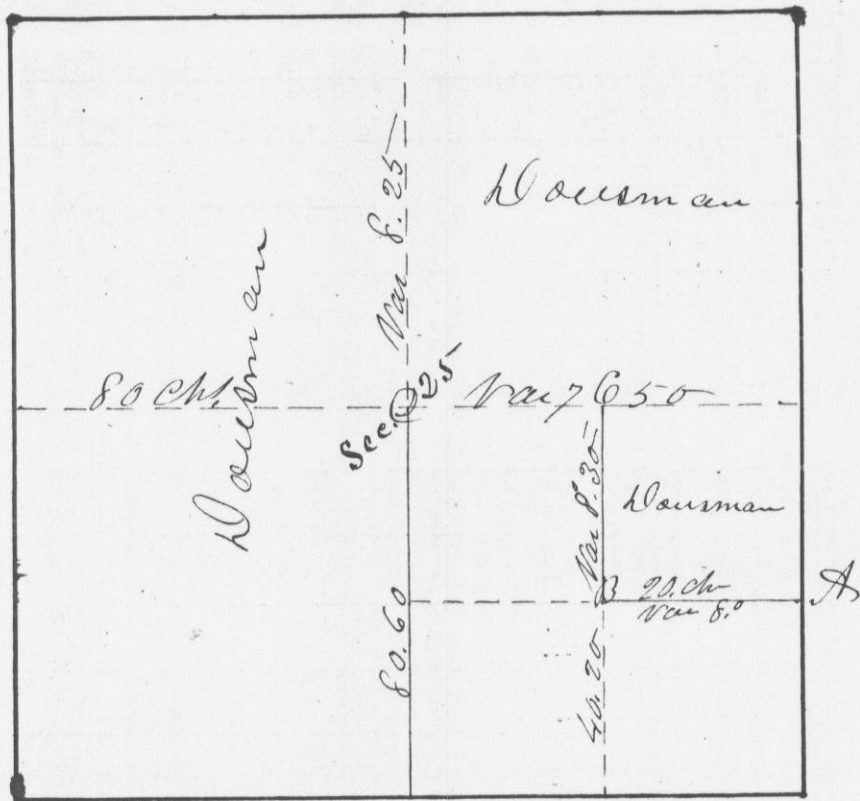 Dousman
Var 8.25
Dousman
80 Chs.
Sec. 25
Var 7 C 50
Var 8°.30
Dousman
B
20. Ch
Var 8.°
A
80.60
40.20